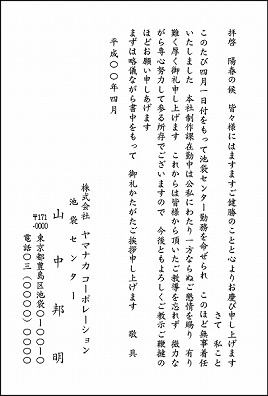 拝啓　陽春の候　皆々様にはますますご健勝のことと心よりお慶び申し上げます
さて　私こと
このたび四月一日付をもって池袋センター勤務を命ぜられ　このほど無事着任
いたしました　本社制作課在勤中は公私にわたり一方ならぬご懇情を賜り　有り
難く厚く御礼申し上げます　これからは皆様から頂いたご教導を忘れず　微力な
がら専心努力して参る所存でございますので　今後ともよろしくご教示ご鞭撻の
ほどお願い申しあげます
まずは略儀ながら書中をもって　御礼かたがたご挨拶申し上げます　　敬　具
平成〇〇年四月
株式会社　ヤマナカコーポレーション
池袋センター
山　中　邦　明
〒171-0000　東京都豊島区池袋〇-〇〇-〇
電話〇三（〇〇〇〇）〇〇〇〇